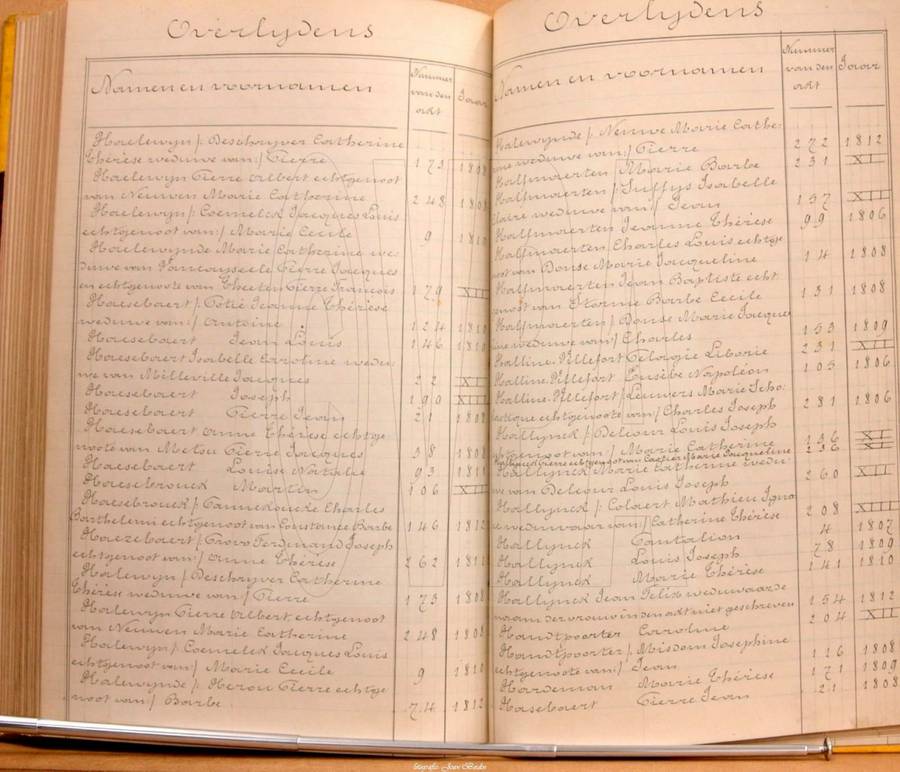 Overlydens
Namen en voornamen
Nummer
van den
akt
Jaar
Haelewyn / Deschryver Catherine
Thérèse weduwe van / Pierre 173 1808
Haelewyn Pierre Albert echtgenoot
van Neuwen Marie Catherine 248 1808
Haelewyn / Coemelck Jacques Louis
echtgenoot van / Marie Cecile 9 1810
Haelewynde Marie Catherine we-
duwe van Pierre Jacques
en echtgenoote van Pierre François 179 XII
Haesebaert / Jeanne Thérèse
weduwe van / Antoine 124 1810
Haesebaert Jean Louis 146 1810
Haesebaert Isabelle Caroline wedu-
we van Milleville Jacques 22
Haesebaert Joseph 190 XIII
Haesebaert Pierre Jean 21 1808
Haesebaert Anne Thérèse echtge-
noote van Metsu Pierre Jacques 38 1808
Haesebaert Louise Nathalie 93 1811
Haesebrouck Martin 106 XII
Haesebrouck / Vannekoucke Charles
Barthelemi echtgenoot van Constance Barbe 146 1812
Haezebaert / Trovo Ferdinand Joseph
echtgenoot van / Anne Thérèse 262 1811
Halewyn / Deschryver Catherine
Thérèse weduwe van / Pierre 173 1808
Halewyn Pierre Albert echtgenoot
van Neuwen Marie Catherine 248 1808
Halewyn / Coemelck Jacques Louis
echtgenoot van / Marie Cecile 9 1810
Halewynde / Herou Pierre echtge-
noot van / Barbe 74 1812
Overlydens
Namen en voornamen
Nummer
van den
akt
Jaar
Halewynde / Neuwe Marie Cathe-
rine weduwe van / Pierre 272 1812
Halfmaerten Marie Barbe 231 XI
Halfmaerten / Suffys Isabelle
Claire weduwe van / Jean 157 XII
Halfmaerten Jeanne Thérèse 99 1806
Halfmaerten Charles Louis echtge-
noot van Donse Marie Jacqueline 14 1808
Halfmaerten Jean Baptiste echt-
genoot van Storme Barbe Cecile 131 1808
Halfmaerten / Donse Marie Jacque-
line weduwe van / Charles 153 1809
Halline Pillefort Pelagie Liborie 231 XII
Halline Pillefort Eusèbe Napoléon 103 1806
Halline Pillefort / Leuwers Marie Scho-
lastique echtgenoote van / Charles Joseph 281 1806
Hallynck / Delcour Louis Joseph
echtgenoot van / Marie Catherine 136 XI
Hallynck Pierre echtgenoot van Marie Jacqueline 236
Hallynck Marie Catherine wedu-
we van Delcour Louis Joseph 260 XII
Hallynck / Colaert Mathieu Igna-
ce weduwaar van / Catherine Thérèse 208 XIII
Hallynck Pantalion 4 1807
Hallynck Louis Joseph 78 1809
Hallynck Marie Thérèse 141 1810
Hallynck Jean Felix weduwaar de
naam der vrouw in den akt niet geschreven 154 1812
Handtpoorter Caroline 204 XII
Handtpoorter / Misdom Josephine
echtgenoote van / Jean 116 1808
Hardeman Marie Thérèse 171 1809
Hasebaert Pierre Jean 21 1808
fotografie: Joan Badin